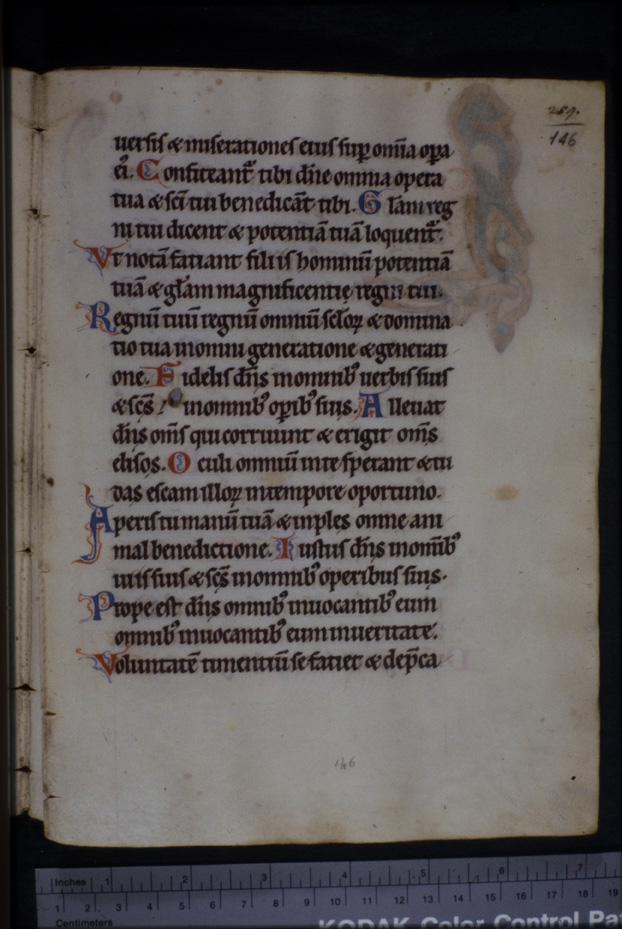 259.
146
uersis & miserationes eius sup̄ om̄ia op̄a
ei᾿. Confiteant᷑ tibi dn̄e omnia opera
tua & sc̄i tui benedicāt tibi. Glām reg
ni tui dicent & potentiā tuā loquent᷑.
Vt notā fatiant filiis hominū potentiā
tuā & glām magnificentię regni tui.
Regnū tuū regnū omniū sc̄loꝝ & domina
tio tua inomni generatione & generati
one. Fidelis dn̄s inomnibꝰ uerbis suis
& sc̄s inomnibꝰ opibꝰ suis. Alleuat
dn̄s om̄s qui corruunt & erigit om̄s
elisos. Oculi omniū inte sperant & tu
das escam illoꝝ intempore oportuno.
Aperis tu manū tuā & inples omne ani
mal benedictione. Iustus dn̄s inom̄ibꝰ
uiis suis & sc̄s inomnibꝰ operibus suis.
Prope est dn̄s omnibꝰ inuocantibꝰ eum
omnibꝰ inuocantibꝰ eum inueritate.
Voluntatē timentiū se fatiet & dep̄ca
146
Inches 1 2 3 4 5 6 7
1 2 3 4 5 6 7 8 9 10 11 12 13 14 15 16 17 18 19
Centimeters
KODAK Color Control Pat